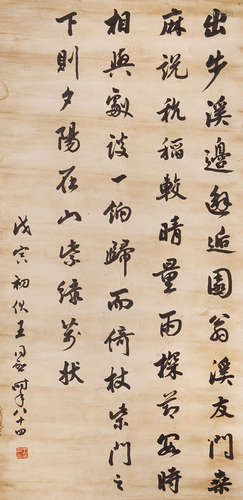 出步溪邊邂逅園翁溪友問桒
麻說秔稻較晴量雨探節數時
相與劇談一餉歸而倚杖柴門之
下則夕陽在山紫綠萬狀
戊寅初伏王同愈時年八十四